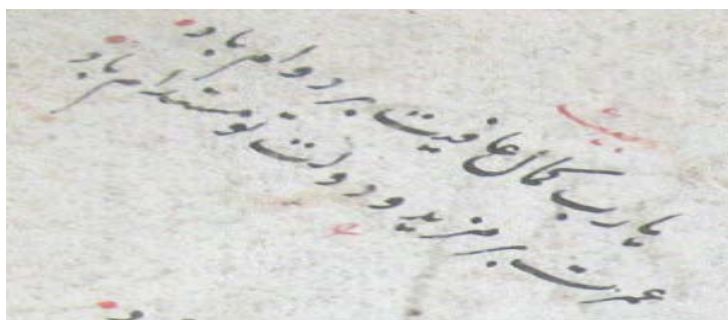 بیت
یا رب کمال عافیت بر دوام باد
عمرت بر مزید و دولت تو مستدام باد